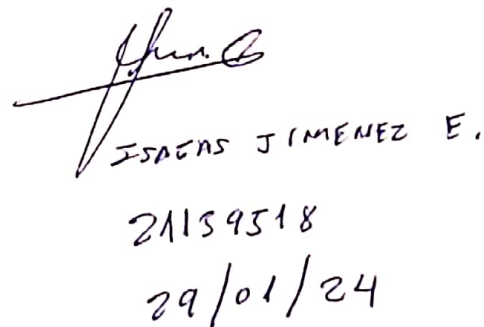 ISAIAS JIMENEZ E.
21139518
29/01/24